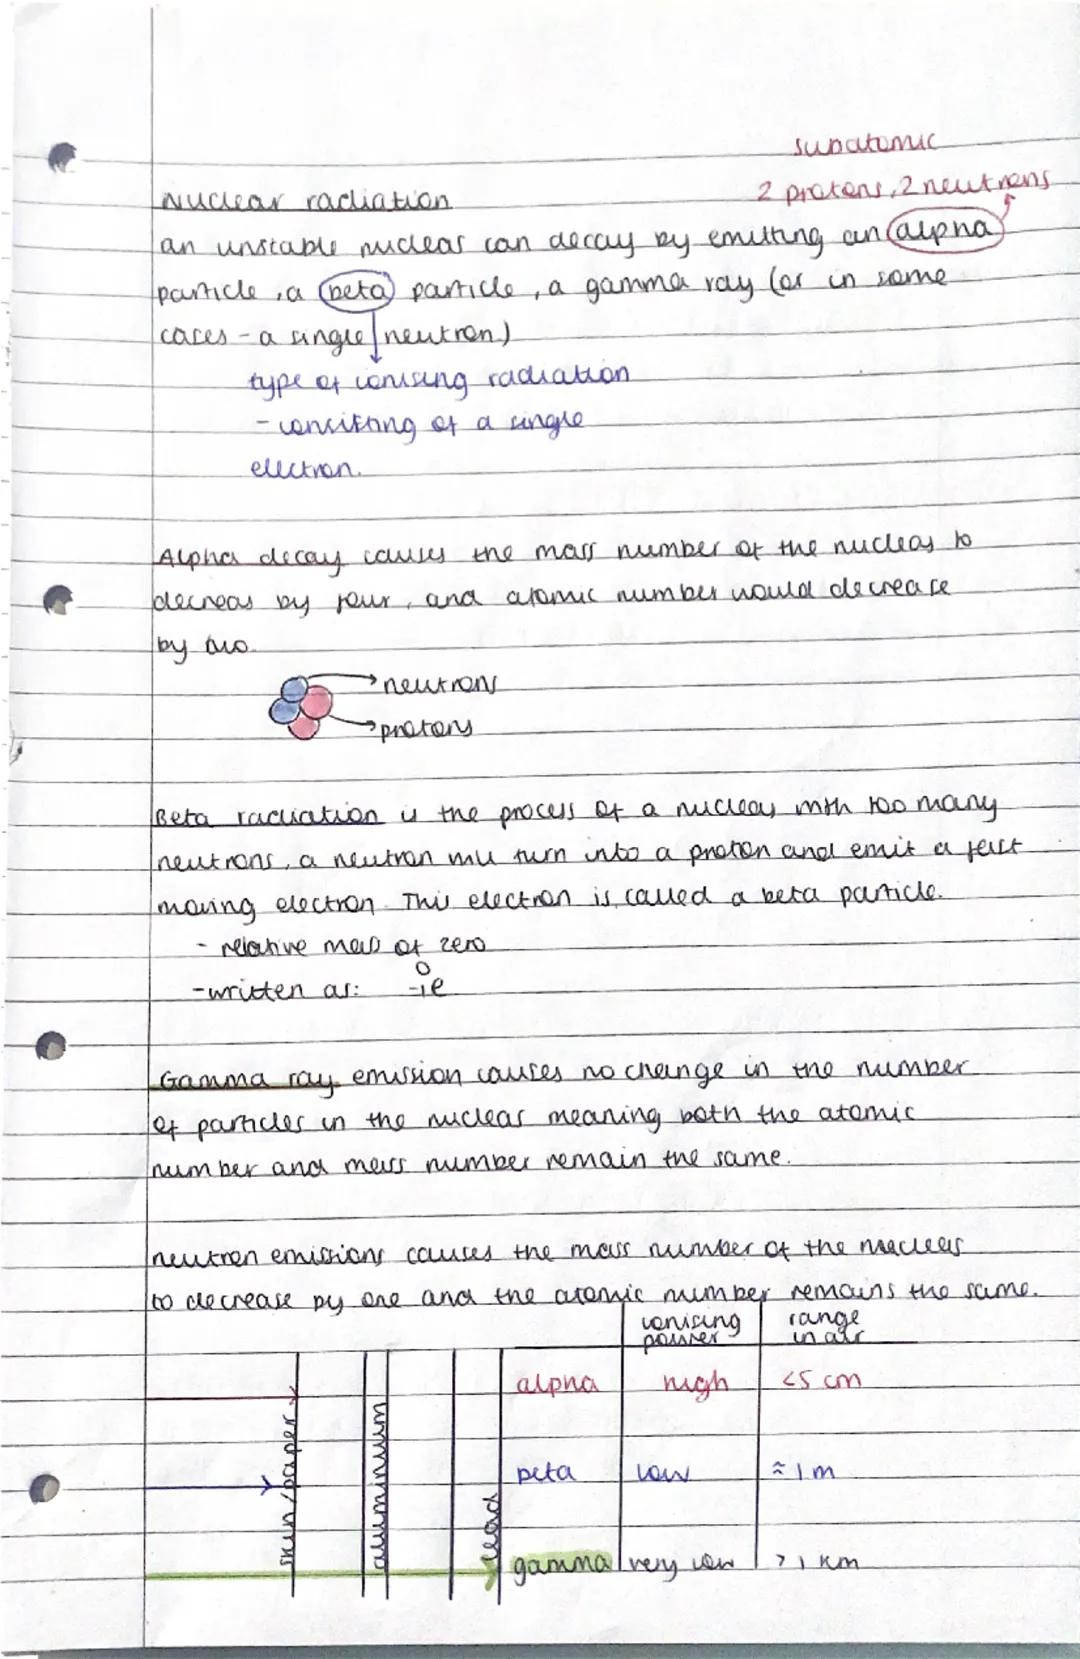 subatomic
2 protons, 2 neutrons
Nuclear radiation
an unstable nuclear can decay by emitting an alpha
particle, a beta particle, a gamma ray (or in some
cases - a single neutron)
type of ionising radiation
- consisting of a single
electron.
Alpha decay causes the mass number of the nucleas to
decreas by four, and atomic number would decrease
by two.
neutrons
protons
Beta radiation is the process of a nucleas with too many
neutrons, a neutron will turn into a proton and emit a fast
moving electron. This electron is called a beta particle.
- relative mass of zero
- written as: 0 -1e
Gamma ray emission causes no change in the number
of particles in the nuclear meaning both the atomic
number and mass number remain the same.
neutron emissions causes the mass number of the nucleus
to decrease by one and the atomic number remains the same.
ionising power range in air
alpha high <5 cm
beta low ≈ 1m
gamma very low > 1 km
skin/paper
aluminium
lead